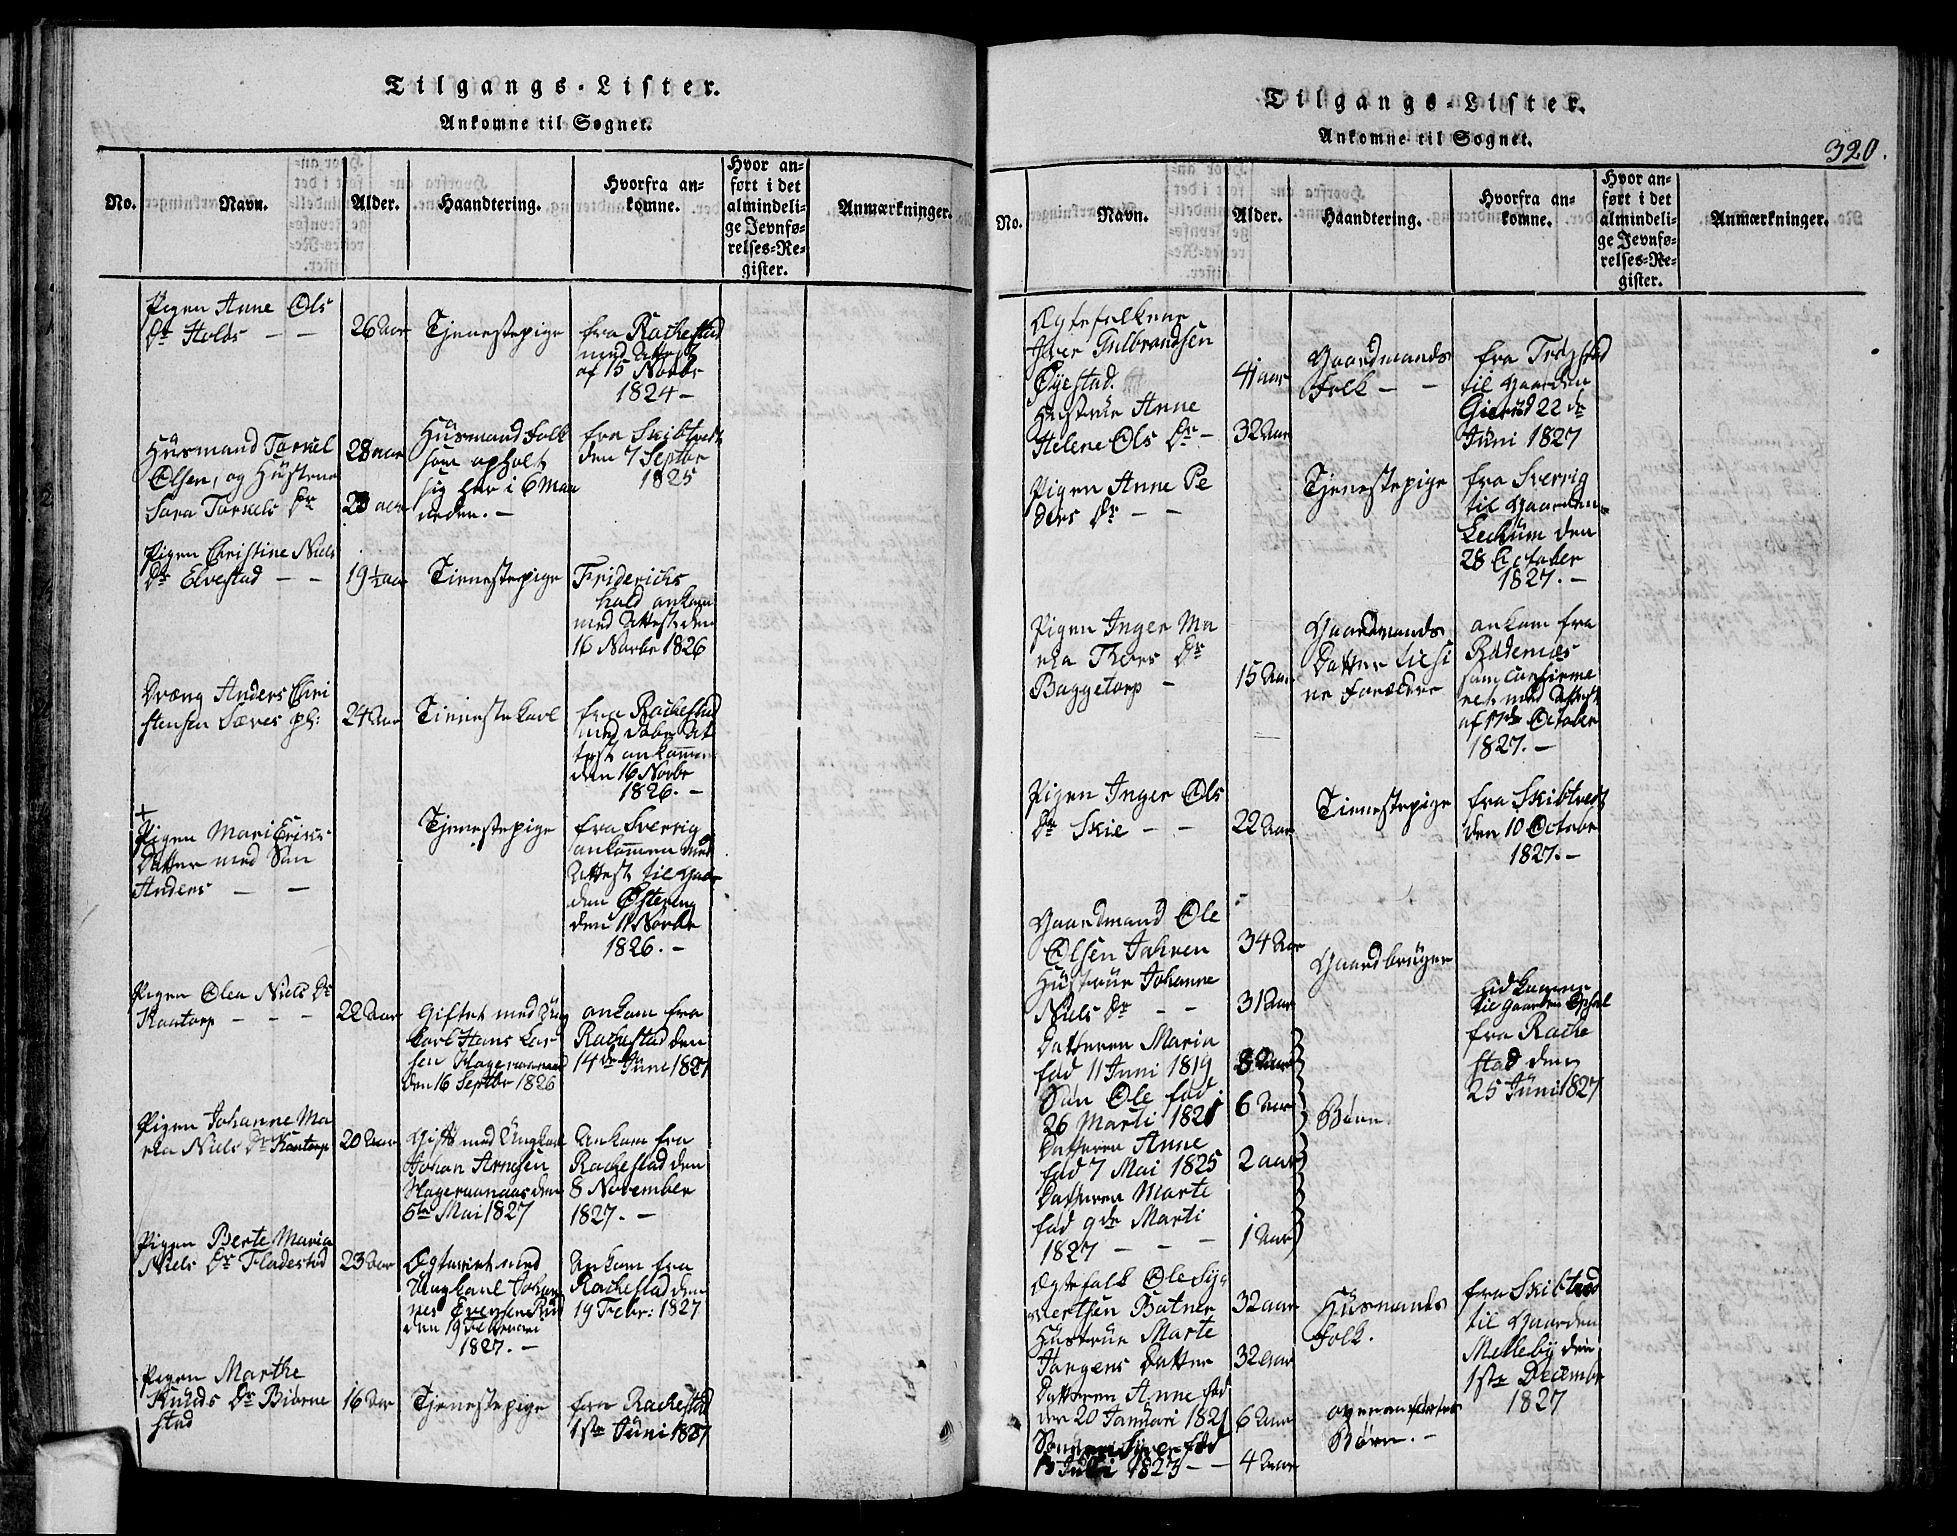 Tilgangs-Lister.
Ankomne til Sognet.
No.
Navn.
Alder.
Haandtering.
Hvorfra an-
komne.
Hvor an-
ført i det
almindeli-
ge Jevnfø-
relses-Re-
gister.
Anmærkninger.
Pigen Anne Ols
Dr Holds — —
26 Aar
Tjenestepige
fra Rachestad
med Attest
af 15 Novbr
1824 —
Huusmand Torkel
Olsen, og Hustrue
Sara Torkels Dr
28 aar
23 aar
Huusmand Folk
som opholt
sig her i 6 Maa
neder. —
fra Skibtvedt
den 7 Septbr
1825
Pigen Christine Niels
Dr Elvestad — —
19½ aar
Tienestepige
Friderichs
hald ankom
med Attest den
16 Novbr 1826
Dreng Anders Chri
stensen
24 Aar
Tienestekarl
fra Rachestad
med Døbe At
test ankommen
den 16 Novbr
1826. —
+
Pigen Mari Eriks
Datter med Søn
Anders — —
Tjenestepige
fra Sverrig
ankommen med
Attest til Gaar
den Østereng
den 11 Novbr
1826. —
Pigen Olea Niels Dr
Kaatorp — — —
22 Aar
Giftet med Ung
karl Hans Lar
sen
den 16 Septbr 1826
ankom fra
Rachestad den
14de Juni 1827
Pigen Johanne Ma
ria Niels Dr Kaatorp
20 Aar
Gift med Ungkarl
Johan Arnesen
den
5te Mai 1827
Ankom fra
Rachestad den
8 November
1827. —
Pigen Berte Maria
Niels Dr Fladestad
23 Aar
Ægteviet med
Ungkarl Johan
nes Evensen Rud
den 19 Februari
1827. —
Ankom fra
Rachestad den
19 Febr: 1827
Pigen Marthe
Knuds Dr Biørne
stad
16 Aar
Tjenestepige
fra Rachestad
1ste Juni 1827
Tilgangs-Lister.
Ankomne til Sognet.
320.
No.
Navn.
Alder.
Haandtering.
Hvorfra an-
komne.
Hvor an-
ført i det
almindeli-
ge Jevnfø-
relses-Re-
gister.
Anmærkninger.
Ægtefolkene
Iver Gulbrandsen
Øyestad.
Hustrue Anne
Helene Ols Dr —
41 aar
32 Aar
Gaardmands
Folk — —
fra Trøgstad
til Gaarden
Gierud 22 de
Juni 1827
Pigen Anne Pe
ders Dr — —
Tjenestepige
fra Sverrig
til Gaarden
Lechum den
28 October
1827. —
Pigen Inger Ma
ria Thors Dr
Baggetorp —
15 Aar
Gaardmands
Datter til si
ne Forældre
ankom fra
Rødenæs
som Confirme
ret med Attest
af 17de October
1827. —
Pigen Inger Ols
Dr Skie — —
22 Aar
Tienestepige
fra Skibtvedt
den 10 Octobr
1827. —
Gaardmand Ole
Olsen Jahren
Hustrue Johanne
Niels Dr — —
Datteren Maria
fød 11 Juni 1819
Søn Ole fød
26 Marti 1821
Datteren Anne
fød 7 Mai 1825
Datteren Marte
fød 9de Marti
1827 — — —
34 Aar
31 Aar
8 Aar
6 Aar
2 aar
1 Aar
Gaardbruger
Børn.
Indkomne
til Gaarden
fra Rache
stad den
25 Juni 1827
Ægtefolk Ole Syg
vertsen Batner
Hustrue Marte
Jørgens Datter
Datteren Anne fød
den 20 Januari 1821
Sønnen Syver fød
Juli 1823 — —
32 aar
32 Aar
6 Aar
4 Aar
Huusmands
Folk.
ovenanførtes
Børn. —
fra Skibtved
til Gaarden
Melleby den
1ste Decembr
1827